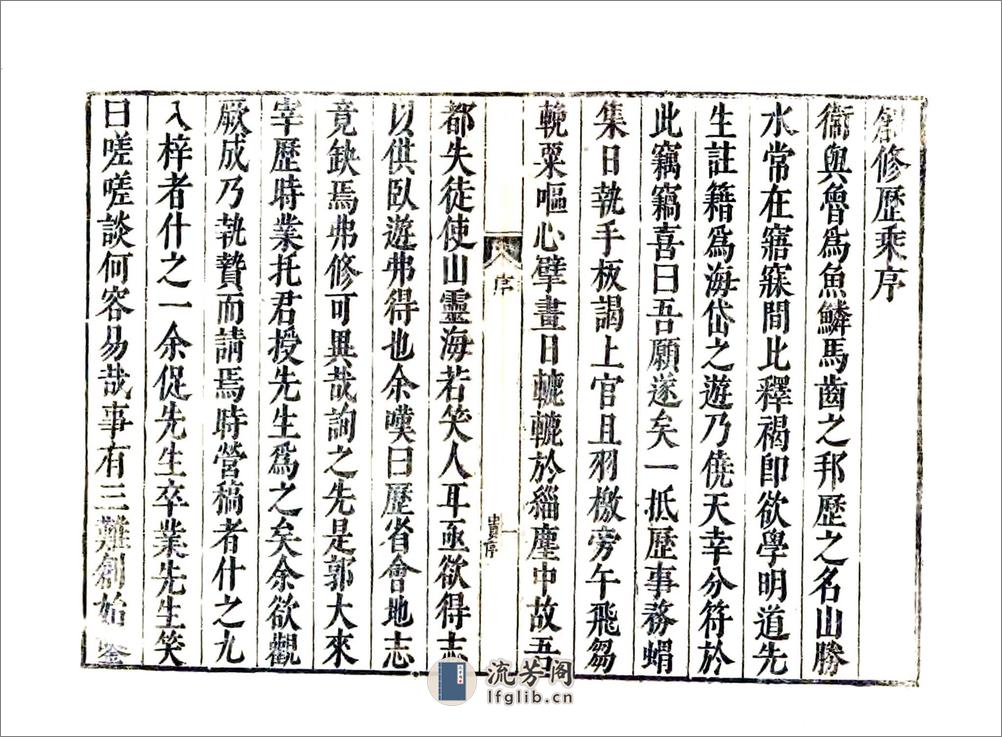 創修歷乘序
衞與魯為魚鱗馬齒之邦歷之名山勝
水常在寤寐間比釋褐即欲學明道先
生註籍為海岱之遊乃僥天幸分符於
此竊竊喜曰吾願遂矣一抵歷事務蝟
集日執手板謁上官且羽檄旁午飛芻
輓粟嘔心擘畫日轆轆於緇塵中故吾
序
一
都失徒使山靈海若笑人耳亟欲得志
以供臥遊弗得也余嘆曰歷省會地志
竟缺焉弗修可異哉詢之先是郭大來
宰歷時業托君授先生為之矣余欲觀
厥成乃執贄而請焉時營稿者什之九
入梓者什之一余促先生卒業先生笑
曰嗟嗟談何容易哉事有三難創始
流芳阁
lfglib.cn